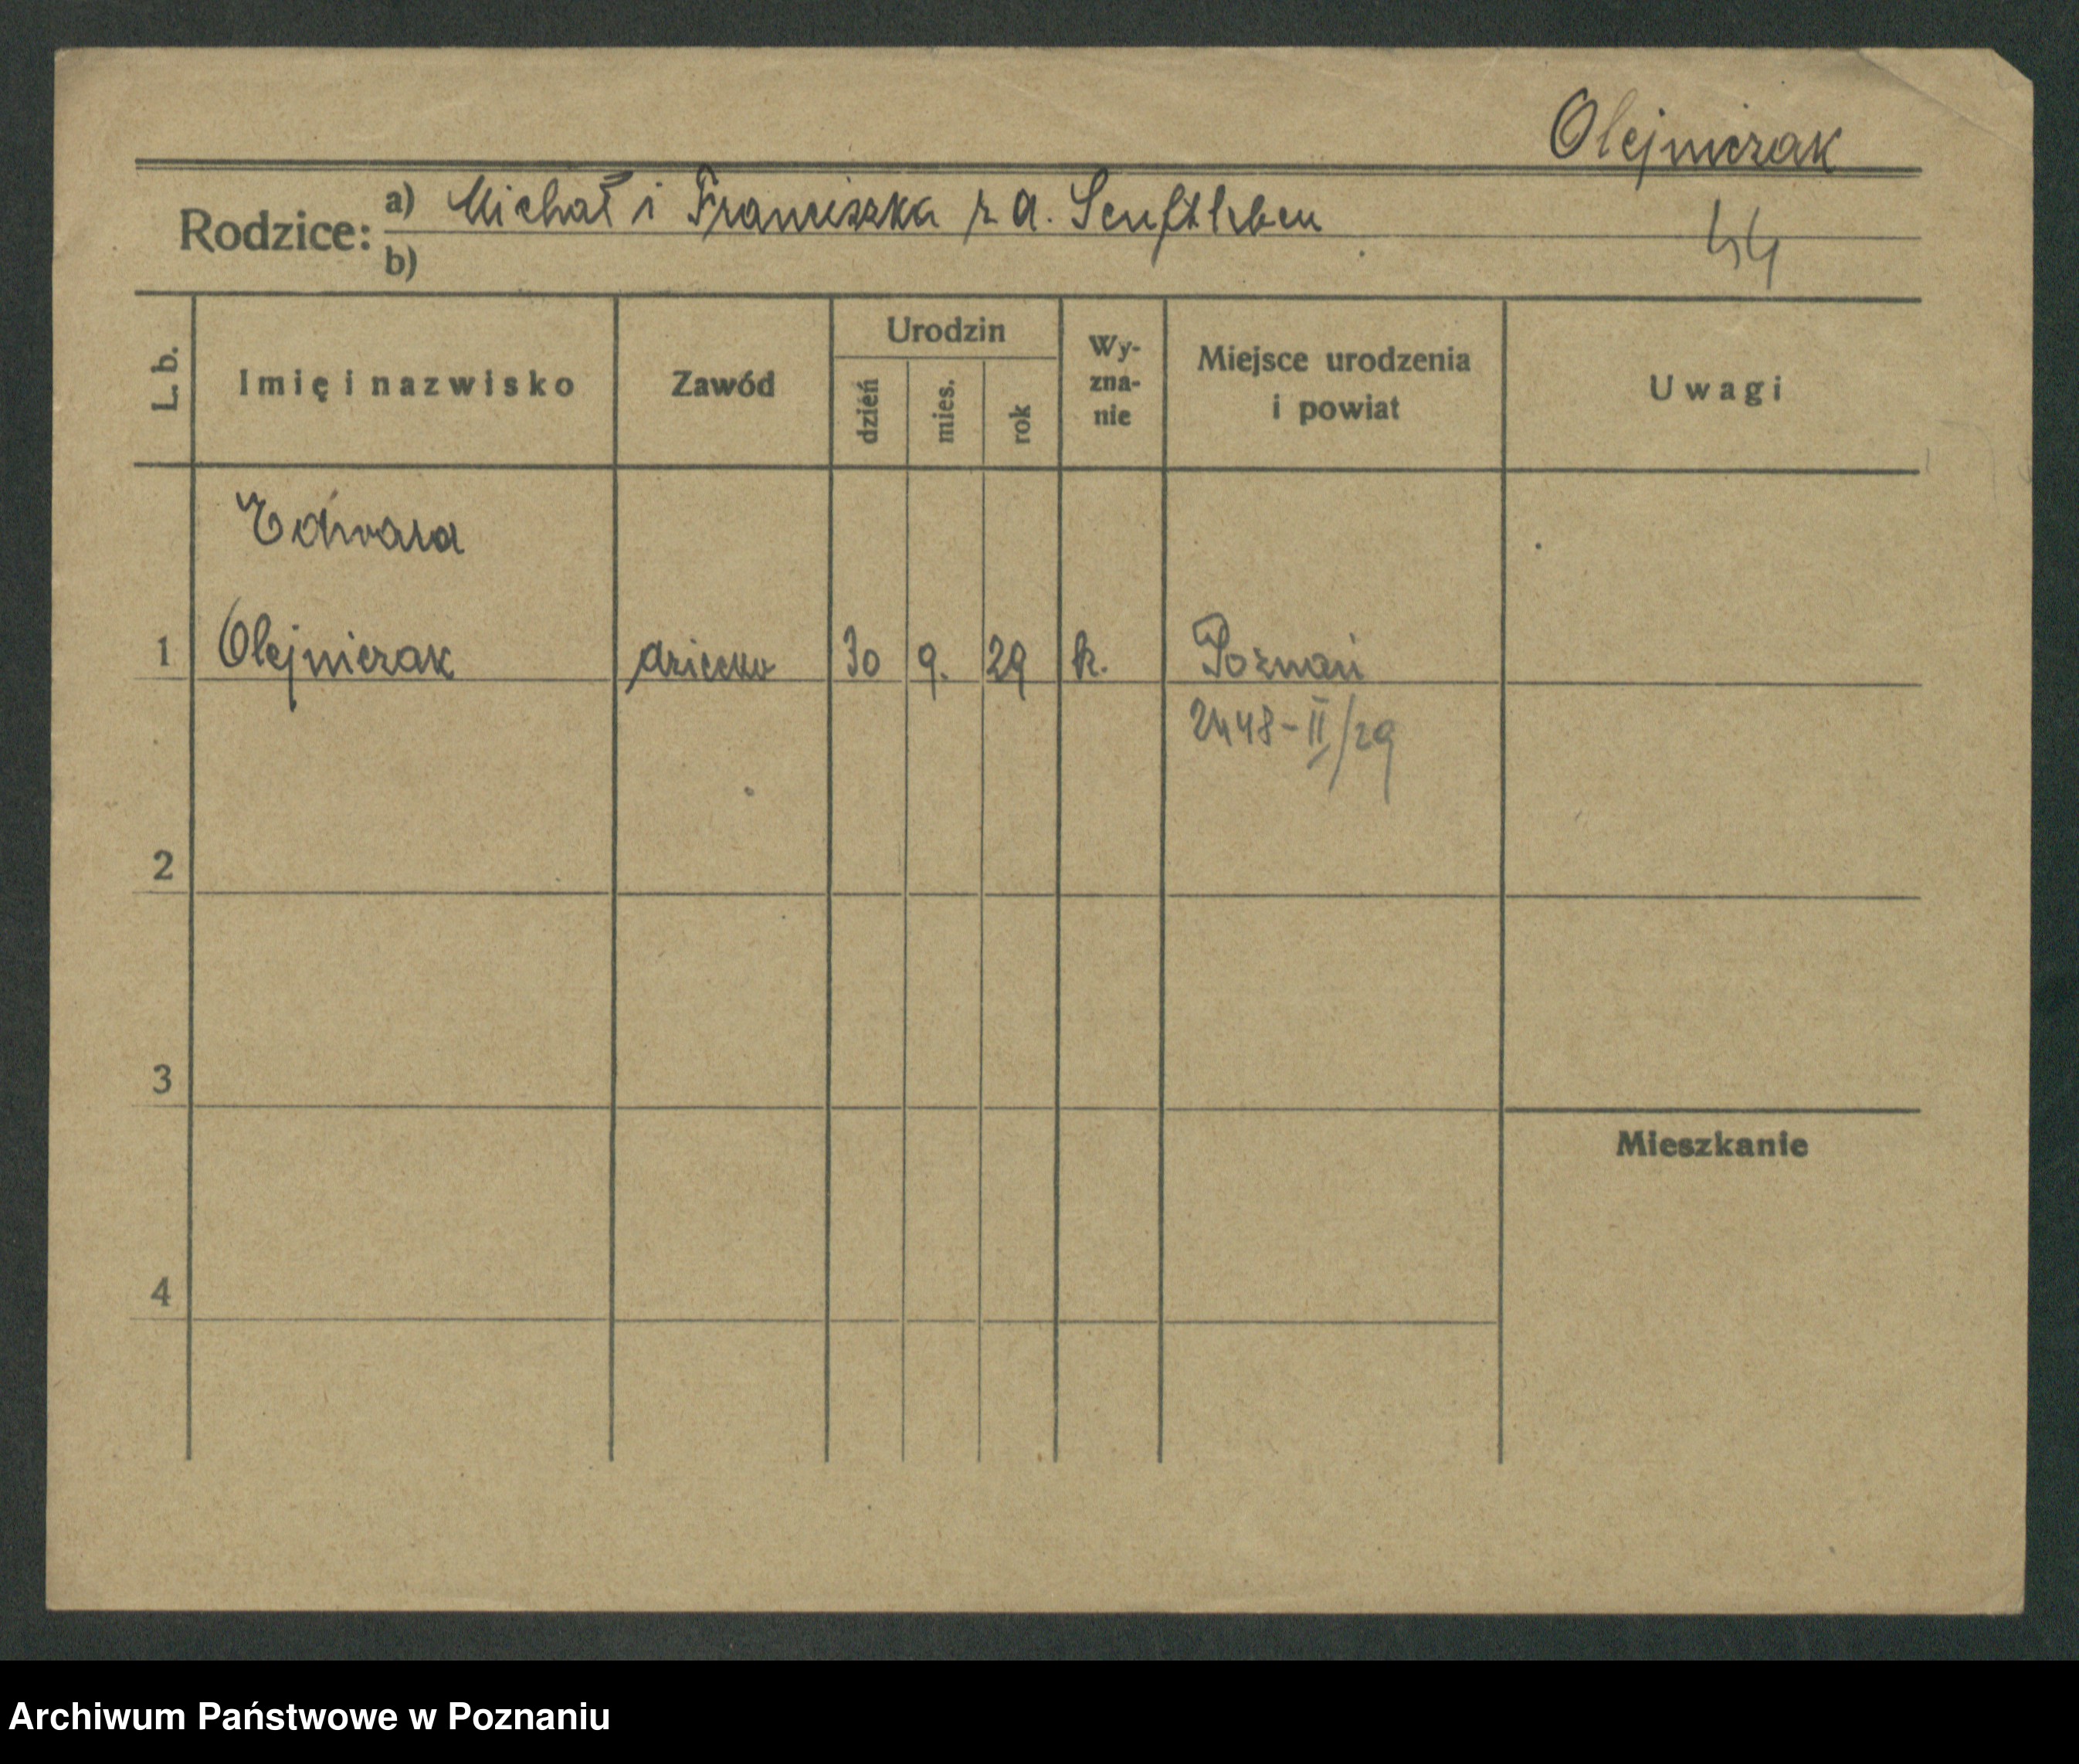 Olejniczak
Rodzice: a) Michał i Franciszka z d. Senftleben
44
b)
L. b.
Imię i nazwisko
Zawód
Urodzin
dzień
mies.
rok
Wy-
zna-
nie
Miejsce urodzenia
i powiat
Uwagi
Edward
1 Olejniczak dziecko 30 9. 29 k. Poznań
2448-II/29
2
3
Mieszkanie
4
Archiwum Państwowe w Poznaniu